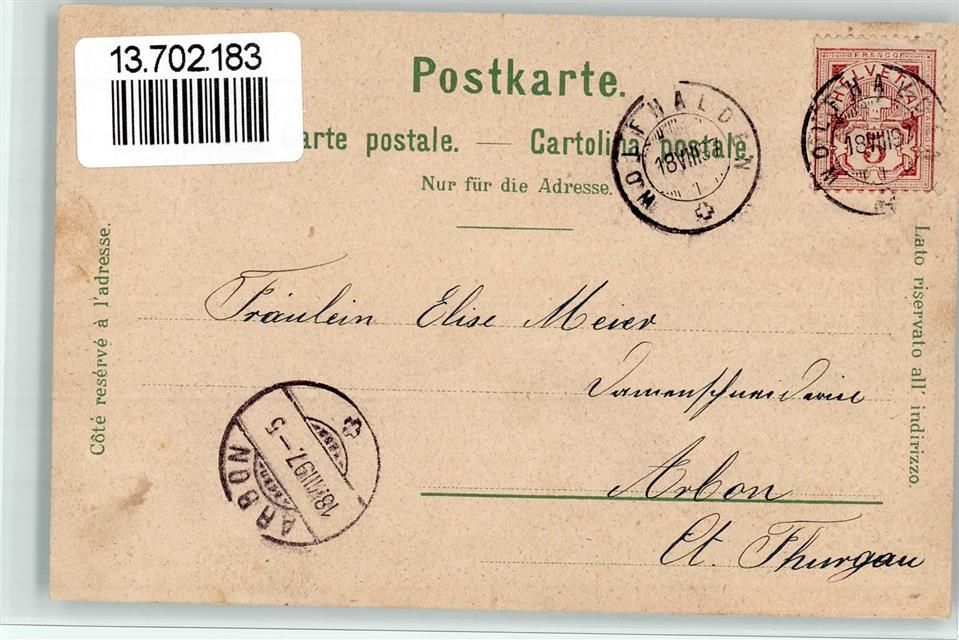 13.702.183
Postkarte.
arte postale. — Cartolina postale.
Nur für die Adresse.
WOLFHALDEN
18 VIII 97
WOLFHAL
18 VIII 97
FRANCO
HELVETIA
5
Côté reservé à l'adresse.
Lato riservato all' indirizzo.
Fräulein Elise Meier
Damenschneiderin
Arbon
Ct. Thurgau
ARBON
18.VIII.97.–5